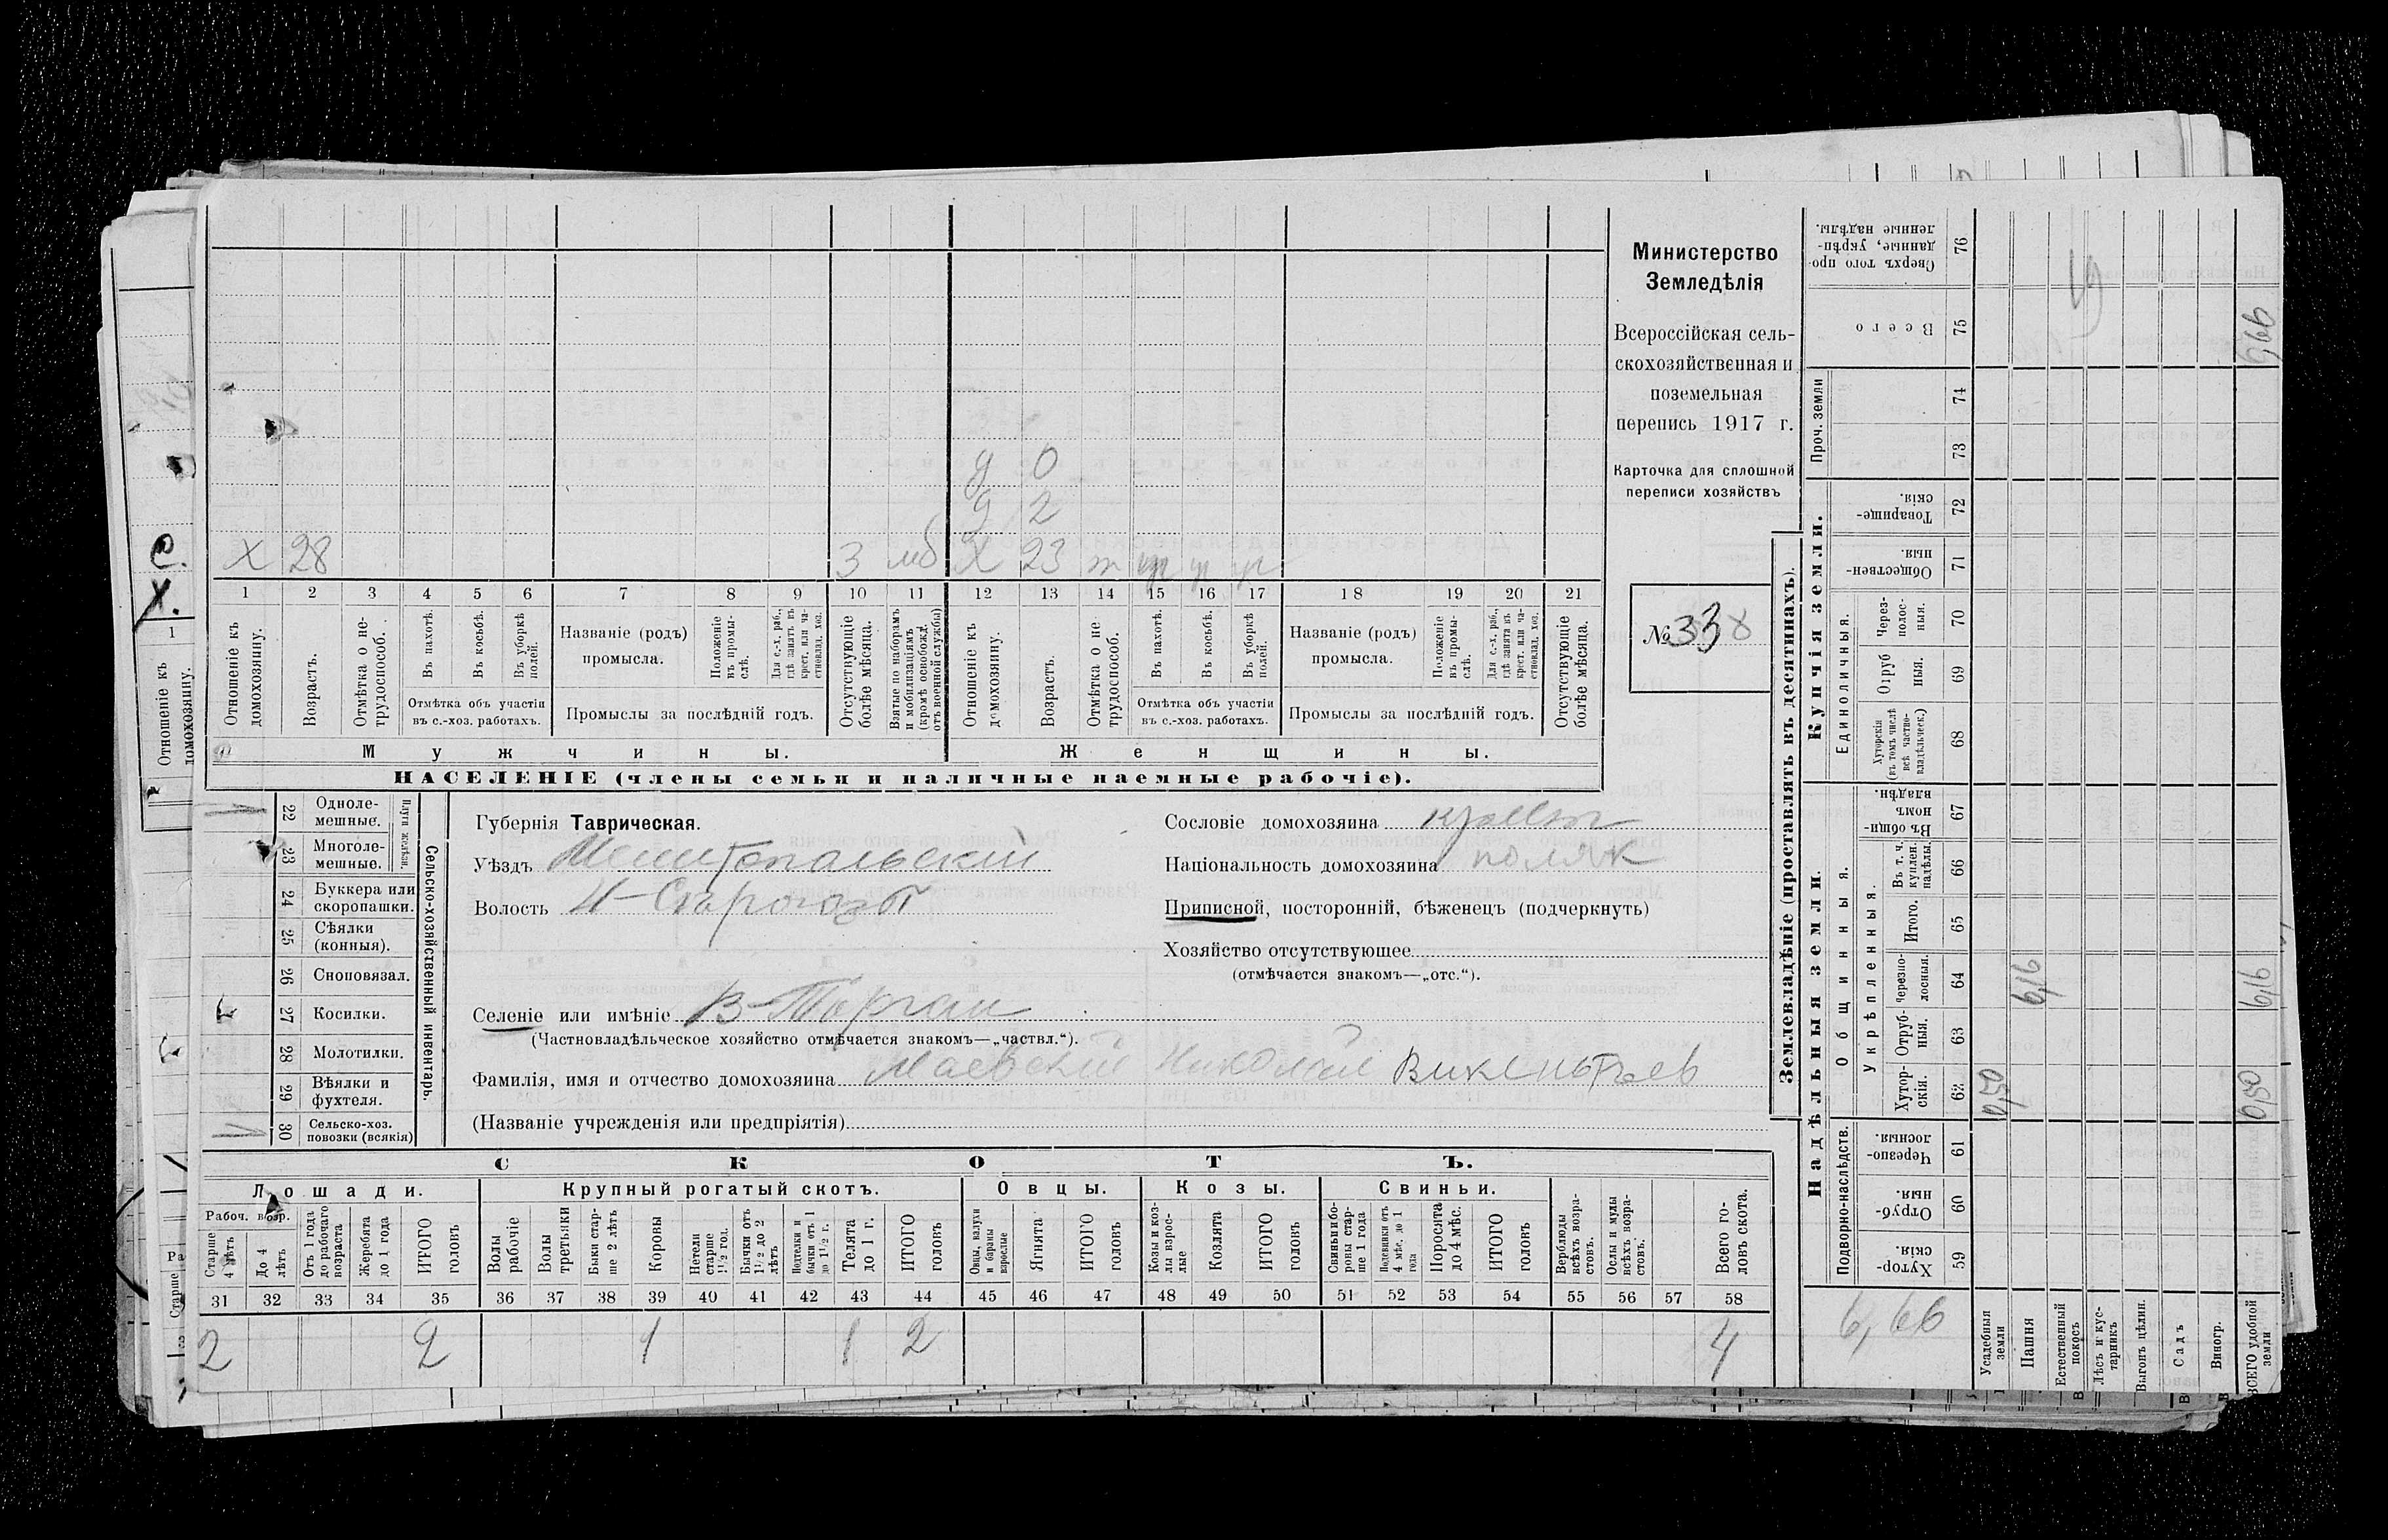 Министерство
Земледѣлія
Всероссійская сель-
скохозяйственная и
поземельная
перепись 1917 г.
Карточка для сплошной
переписи хозяйствъ
№ 338
д 0
д 2
х 28 3 мб х 23 т
1 2 3 4 5 6 7 8 9 10 11 12 13 14 15 16 17 18 19 20 21
Отношеніе къ домохозяину.
Возрастъ.
Отмѣтка о не-трудоспособ.
Въ пахотѣ.
Въ косьбѣ.
Въ уборкѣ полей.
Отмѣтка объ участіи
въ с.-хоз. работахъ.
Названіе (родъ)
промысла.
Положеніе въ промы-слѣ.
Для с.-х. раб., гдѣ занятъ въ крест. или ча-стновлад. хоз.
Промыслы за послѣдній годъ.
Отсутствующіе болѣе мѣсяца.
Взятые по наборамъ и мобилизаціямъ (кромѣ освобожд. отъ военной службы)
Отношеніе къ домохозяину.
Возрастъ.
Отмѣтка о не-трудоспособ.
Въ пахотѣ.
Въ косьбѣ.
Въ уборкѣ полей.
Отмѣтка объ участіи
въ с.-хоз. работахъ.
Названіе (родъ)
промысла.
Положеніе въ промы-слѣ.
Для с.-х. раб., гдѣ занята въ крест. или ча-стновлад. хоз.
Промыслы за послѣдній годъ.
Отсутствующіе болѣе мѣсяца.
Мужчины. Женщины.
НАСЕЛЕНІЕ (члены семьи и наличные наемные рабочіе).
Сельско-хозяйственный инвентарь.
Плуги желѣзн.
22 Одноле-
мешные.
23 Многоле-
мешные.
24 Буккера или
скоропашки.
25 Сѣялки
(конныя).
26 Сноповязал.
27 Косилки.
28 Молотилки.
29 Вѣялки и
фухтеля.
30 Сельско-хоз.
повозки (всякія)
Губернія Таврическая.
Уѣздъ Мелитопольскій
Волость
Селеніе или имѣніе В-Торгаи
(Частновладѣльческое хозяйство отмѣчается знакомъ—„частвл.“).
Фамилія, имя и отчество домохозяина Маевскій Николай Викентьев
(Названіе учрежденія или предпріятія)
Сословіе домохозяина
Національность домохозяина поляк
Приписной, посторонній, бѣженецъ (подчеркнуть)
Хозяйство отсутствующее
(отмѣчается знакомъ—„отс.“).
СКОТЪ.
Лошади. Крупный рогатый скотъ. Овцы. Козы. Свиньи.
Рабоч. возр.
Старше 4 лѣтъ
До 4 лѣтъ
Отъ 1 года до рабочаго возраста
Жеребята до 1 года
ИТОГО головъ
Волы рабочіе
Волы третьяки
Быки стар-ше 2 лѣтъ
Коровы
Нетели старше 1½ год.
Бычки отъ 1½ до 2 лѣтъ
Подтелки и бычки отъ 1 до 1½ г.
Телята до 1 г.
ИТОГО головъ
Овцы, валухи и бараны взрослые
Ягнята
ИТОГО головъ
Козы и коз-лы взрос-лые
Козлята
ИТОГО головъ
Свиньи и бо-ровы стар-ше 1 года
Подсвинки отъ 4 мѣс. до 1 года
Поросята до 4 мѣс.
ИТОГО головъ
Верблюды всѣхъ возра-стовъ.
Ослы и мулы всѣхъ возра-стовъ.
Всего го-ловъ скота.
31 32 33 34 35 36 37 38 39 40 41 42 43 44 45 46 47 48 49 50 51 52 53 54 55 56 57 58
2 2 1 1 2 4
Землевладѣніе (проставлять въ десятинахъ).
Надѣльныя земли. Купчія земли.
Подворно-наслѣдств.
Общинныя.
Укрѣпленныя.
Единоличныя.
Проч. земли
Хутор-скія. 59
Отруб-ныя. 60
Черезпо-лосныя. 61
Хутор-скія. 62
Отруб-ныя. 63
Черезпо-лосныя. 64
Итого. 65
Въ т. ч. куплен. надѣлы. 66
Въ общин-номъ владѣн. 67
Хуторскія (въ томъ числѣ всѣ частно-владѣльческ.) 68
Отруб-ныя. 69
Через-полос-ныя. 70
Обществен-ныя. 71
Товарище-скія. 72
73
74
Всего 75
Сверхъ того про-данные, укрѣп-ленные надѣлы. 76
6,66
Усадебныя земли 0,50
Пашня 6,16
Естественный покосъ
Лѣсъ и кус-тарникъ
Выгонъ цѣлин.
Садъ
Виногр.
ВСЕГО удобной земли 0,50 6,16 6,66